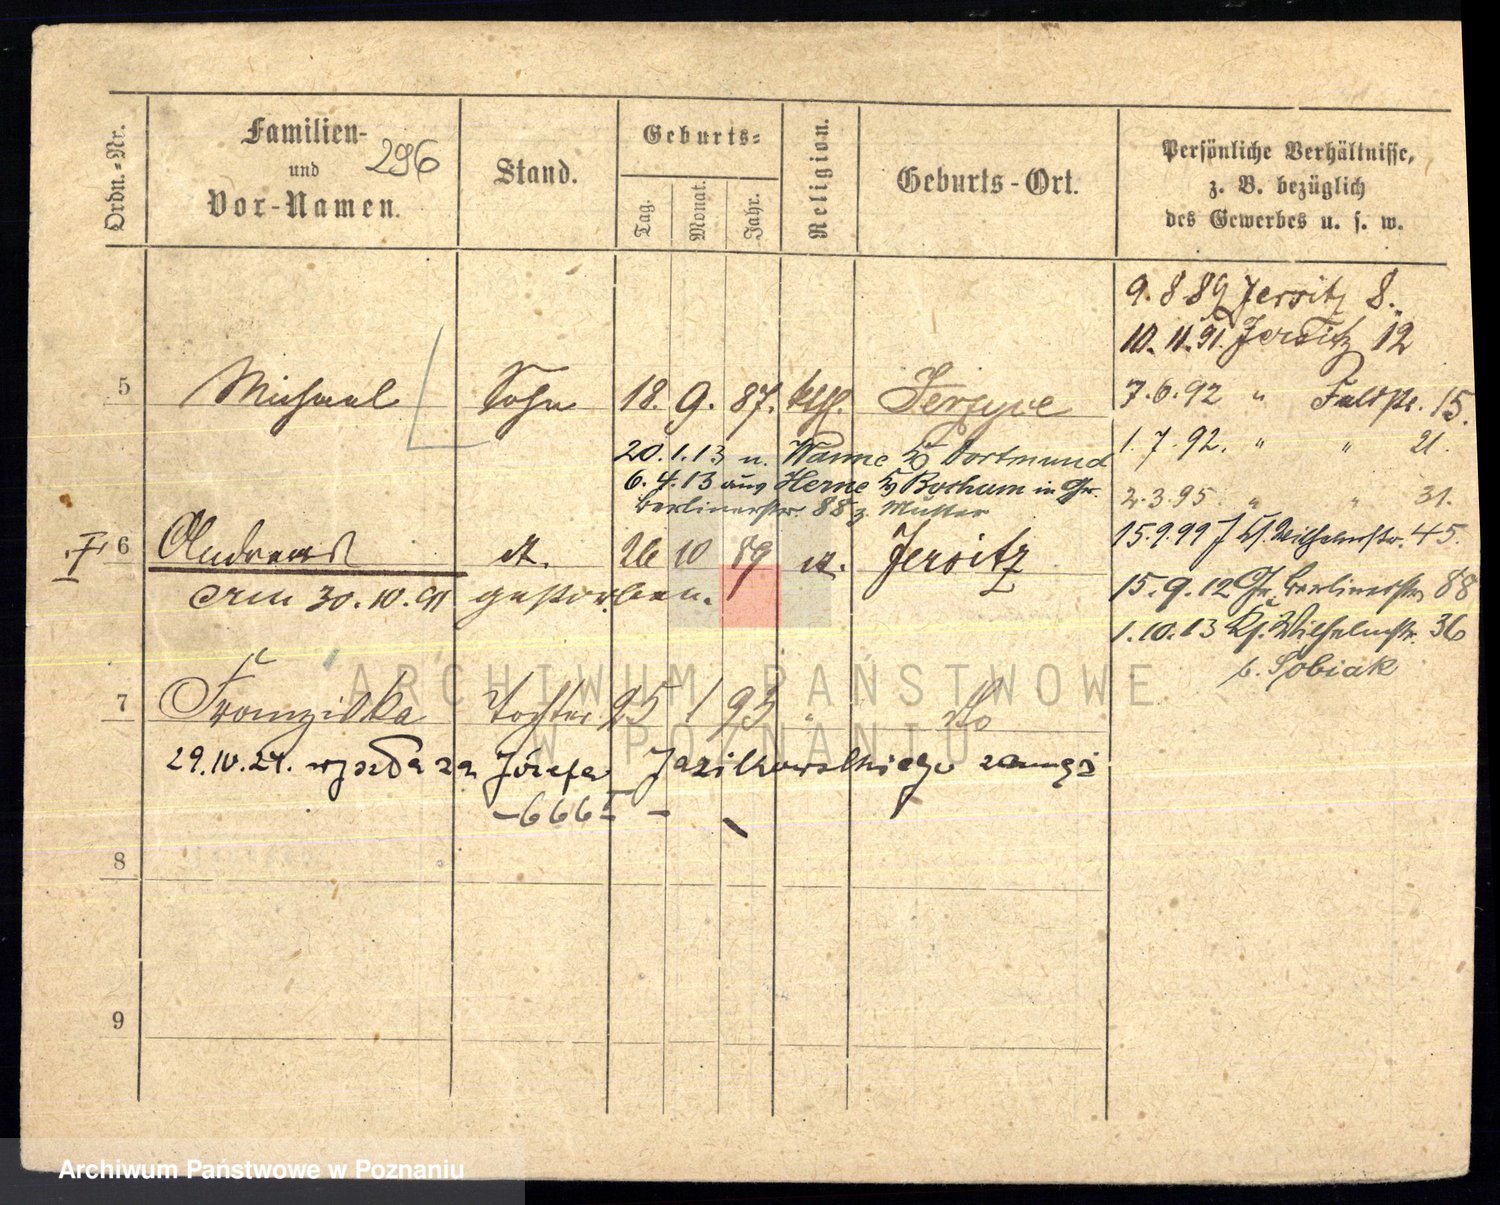 Ordn.-Nr.
Familien-
und
Vor-Namen.
296
Stand.
Geburts-
Tag.
Monat.
Jahr.
Religion.
Geburts-Ort.
Persönliche Verhältnisse,
z. B. bezüglich
des Gewerbes u. s. w.
9. 8 89 Jersitz 8.
10. 11. 91. Jersitz 12
5 Michael Sohn 18. 9. 87. kath. Jerzyce
7. 6. 92 " Feldstr. 15.
20. 1. 13 n. Wanne Dortmund
1. 7. 92. " " 21.
6. 4. 13 aus Herne Bochum in Gr.
Berlinerstr. 88 z. Mutter
2. 3. 95. " " 31.
I 6 Andreas dt. 26 10 89 dt. Jersitz
15. 9. 99 Wilhelmstr. 45.
am 30. 10. 91 gestorben.
15. 9. 12 Gr. Berlinerstr. 88
1. 10. 13 Wilhelmstr. 36
b. Sobiak
7 Franziska Tochter 25 1 93 " do
29. 10. 24. wyszła za Józefa Jazikowskiego zamąż
- 666 -
8
9
ARCHIWUM PAŃSTWOWE
W POZNANIU
Archiwum Państwowe w Poznaniu